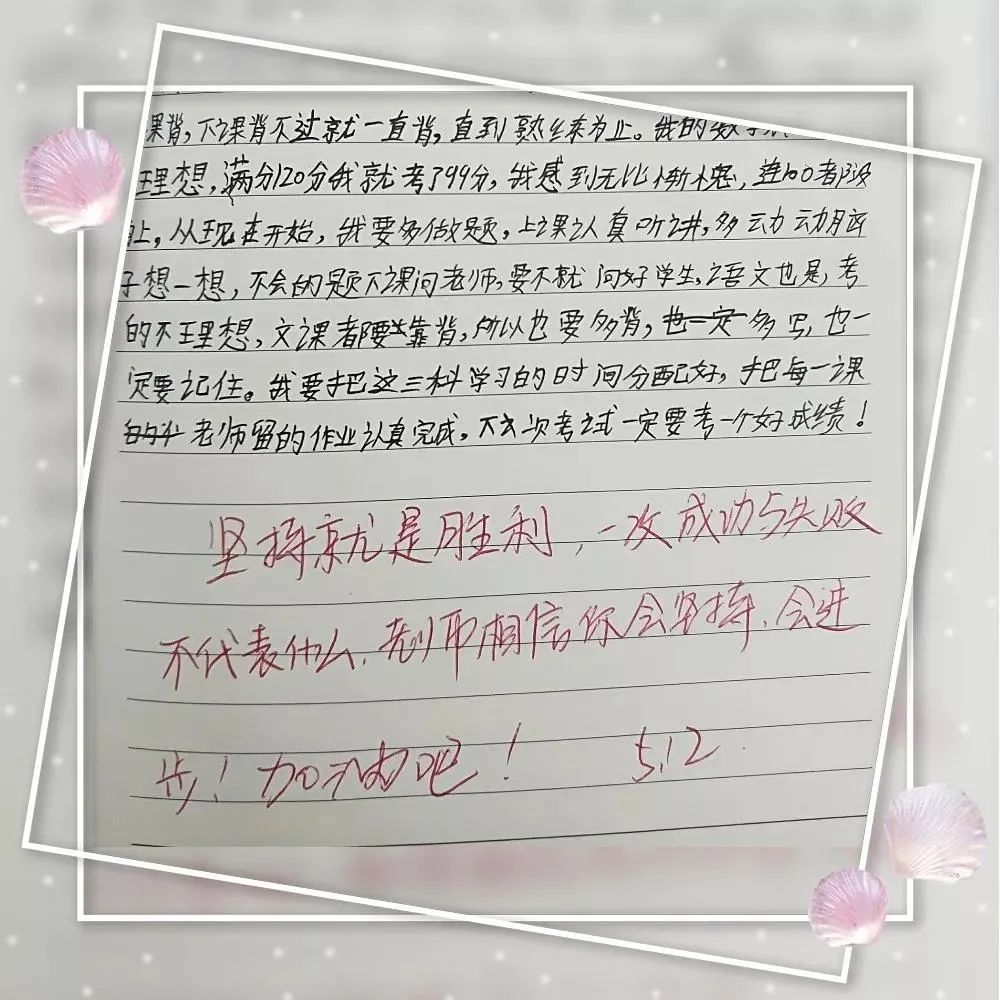 课背，下课背不过就一直背，直到熟练为止。我的数学
理想，满分120分我就考了99分，我感到无比惭愧，连100都没
上，从现在开始，我要多做题，上课认真听讲，多动动脑
子想一想，不会的题下课问老师，要不就问好学生，语文也是，考
的不理想，文课都要靠背，所以也要多背，也一定多写，也一
定要记住。我要把这三科学习的时间分配好，把每一课
老师留的作业认真完成，下次考试一定要考一个好成绩！
坚持就是胜利，一次成功与失败
不代表什么，老师相信你会坚持，会进
步！加油吧！ 5.12